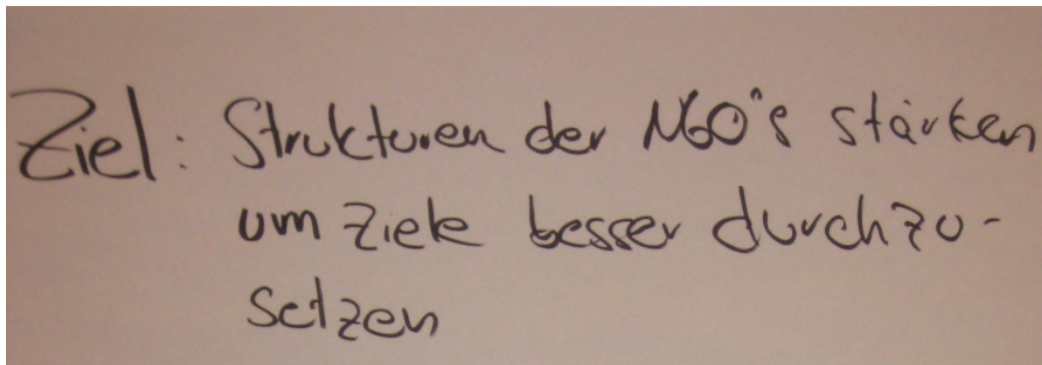 Ziel: Strukturen der NGO's stärken
um Ziele besser durchzu-
setzen